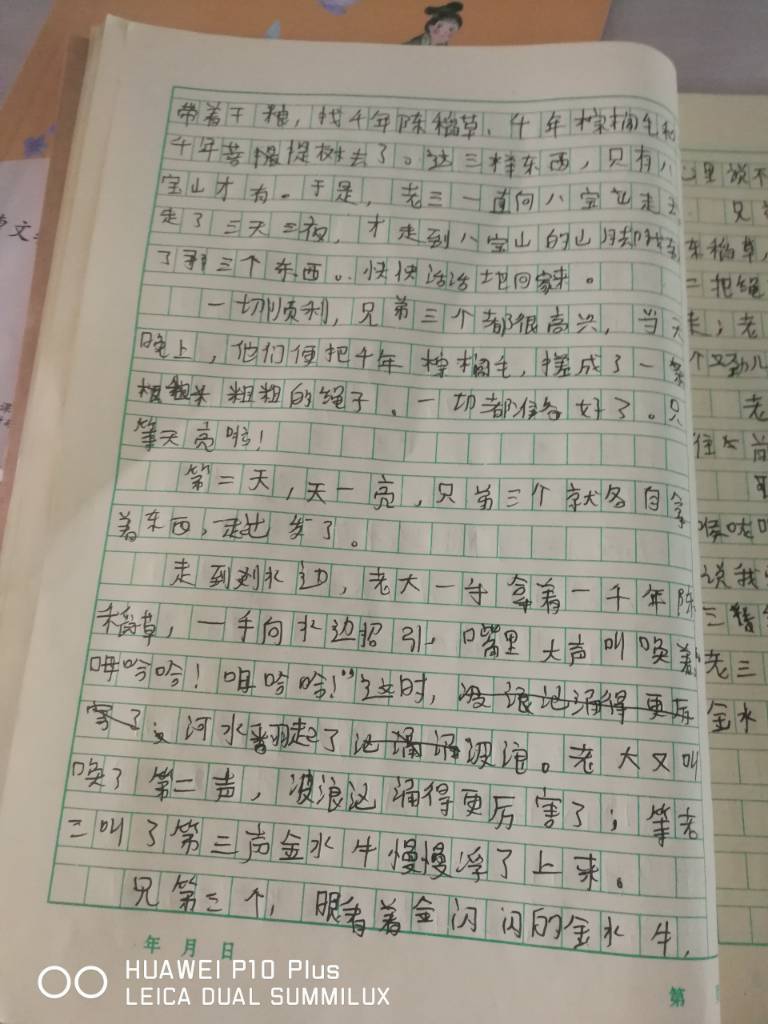 带着干粮，找千年陈稻草、千年棕榈毛和
千年菩提树去了。这三样东西，只有八
宝山才有。于是，老三一直向八宝山走去
走了三天三夜，才走到八宝山的山
了三个东西。快快活活地回家来。
一切顺利，兄第三个都很高兴，当天
晚上，他们便把千年棕榈毛，搓成了一条
粗粗的绳子。一切都准备好了。只
等天亮啦！
第二天，天一亮，兄弟三个就各自拿
着东西，走
走到水边，老大一手拿着一千年陈
稻草，一手向水边招引，嘴里大声叫唤着“
哞吟吟！哞吟吟！”这时，波浪涌得更厉
害了；河水翻起了波浪。老大又叫
唤了第二声，波浪涌得更厉害了；等老
三叫了第三声金水牛慢慢浮了上来。
兄第三个，眼看着金闪闪的金水牛，
年 月 日
第
里
东稻草，
把绳
走；老
个又
老
说我
老三
金水
HUAWEI P10 Plus
LEICA DUAL SUMMILUX